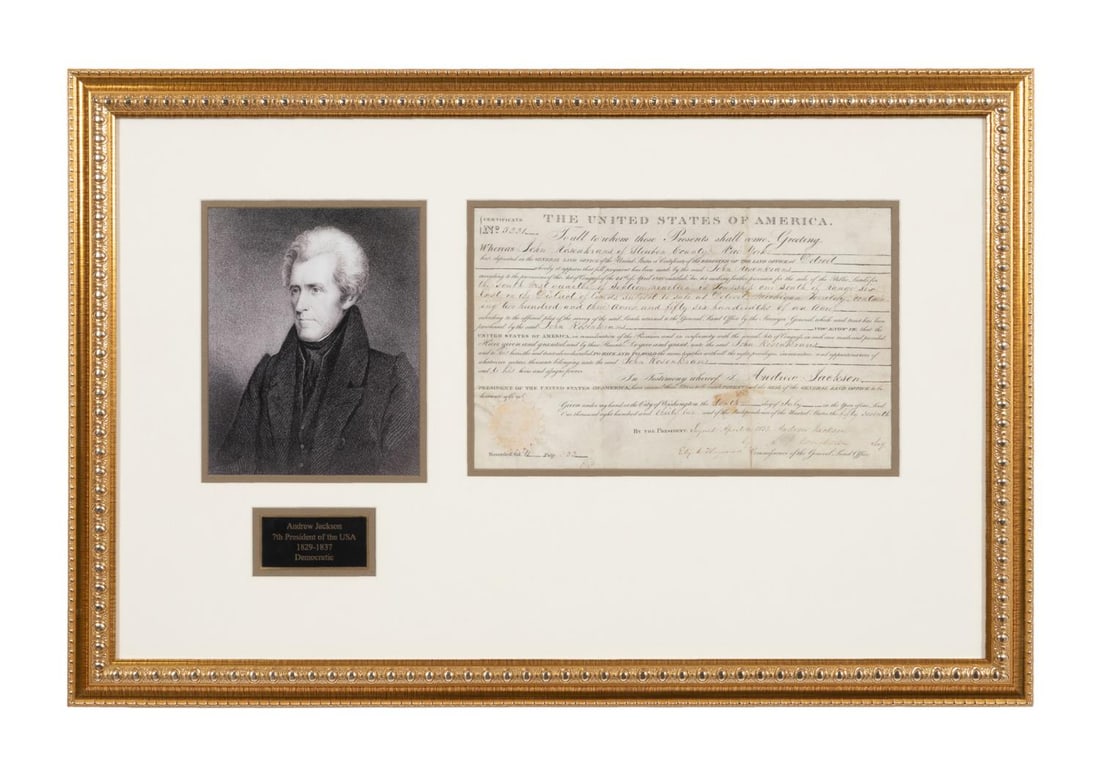 CERTIFICATE
No. 5221
THE UNITED STATES OF AMERICA.
To all to whom these Presents shall come, Greeting.
Whereas John Rosenkrans of Steuben County New York
deposited in the GENERAL LAND OFFICE of the United States, a Certificate of the REGISTER OF THE LAND OFFICE at Detroit
whereby it appears that full payment has been made by the said John Rosenkrans
according to the provisions of the Act of Congress of the 24th of April 1820 entitled An Act making further provision for the sale of the Public Lands for
the South West quarter of Section nineteen in Township one South of Range
East in the District of Lands subject to sale at Detroit Michigan Territory, contain-
ing two hundred and three acres and fifty six hundredths of an acre
according to the official plat of the survey of the said Lands returned to the General Land Office by the Surveyor General, which said tract has been
purchased by the said John Rosenkrans NOW KNOW YE, that the
UNITED STATES OF AMERICA, in consideration of the Premises, and in conformity with the several Acts of Congress in such case made and provided
Have given and granted and by these Presents Do give and grant, unto the said John Rosenkrans
and to his heirs, the said tract above described: TO HAVE AND TO HOLD the same, together with all the rights, privileges, immunities and appurtenances of
whatsoever nature, thereunto belonging, unto the said John Rosenkrans
and to his heirs and assigns forever.
In Testimony whereof I, Andrew Jackson
PRESIDENT OF THE UNITED STATES OF AMERICA, have caused these Letters to be made PATENT and the SEAL of the GENERAL LAND OFFICE to be
hereunto affixed.
Given under my hand at the City of Washington the day of July in the Year of our Lord
One thousand eight hundred and and of the Independence of the United States the fifty seventh
BY THE PRESIDENT: Signed April Andrew Jackson
By Secy.
Recorded Vol. Page Commissioner of the General Land Office
Andrew Jackson
7th President of the USA
1829-1837
Democratic